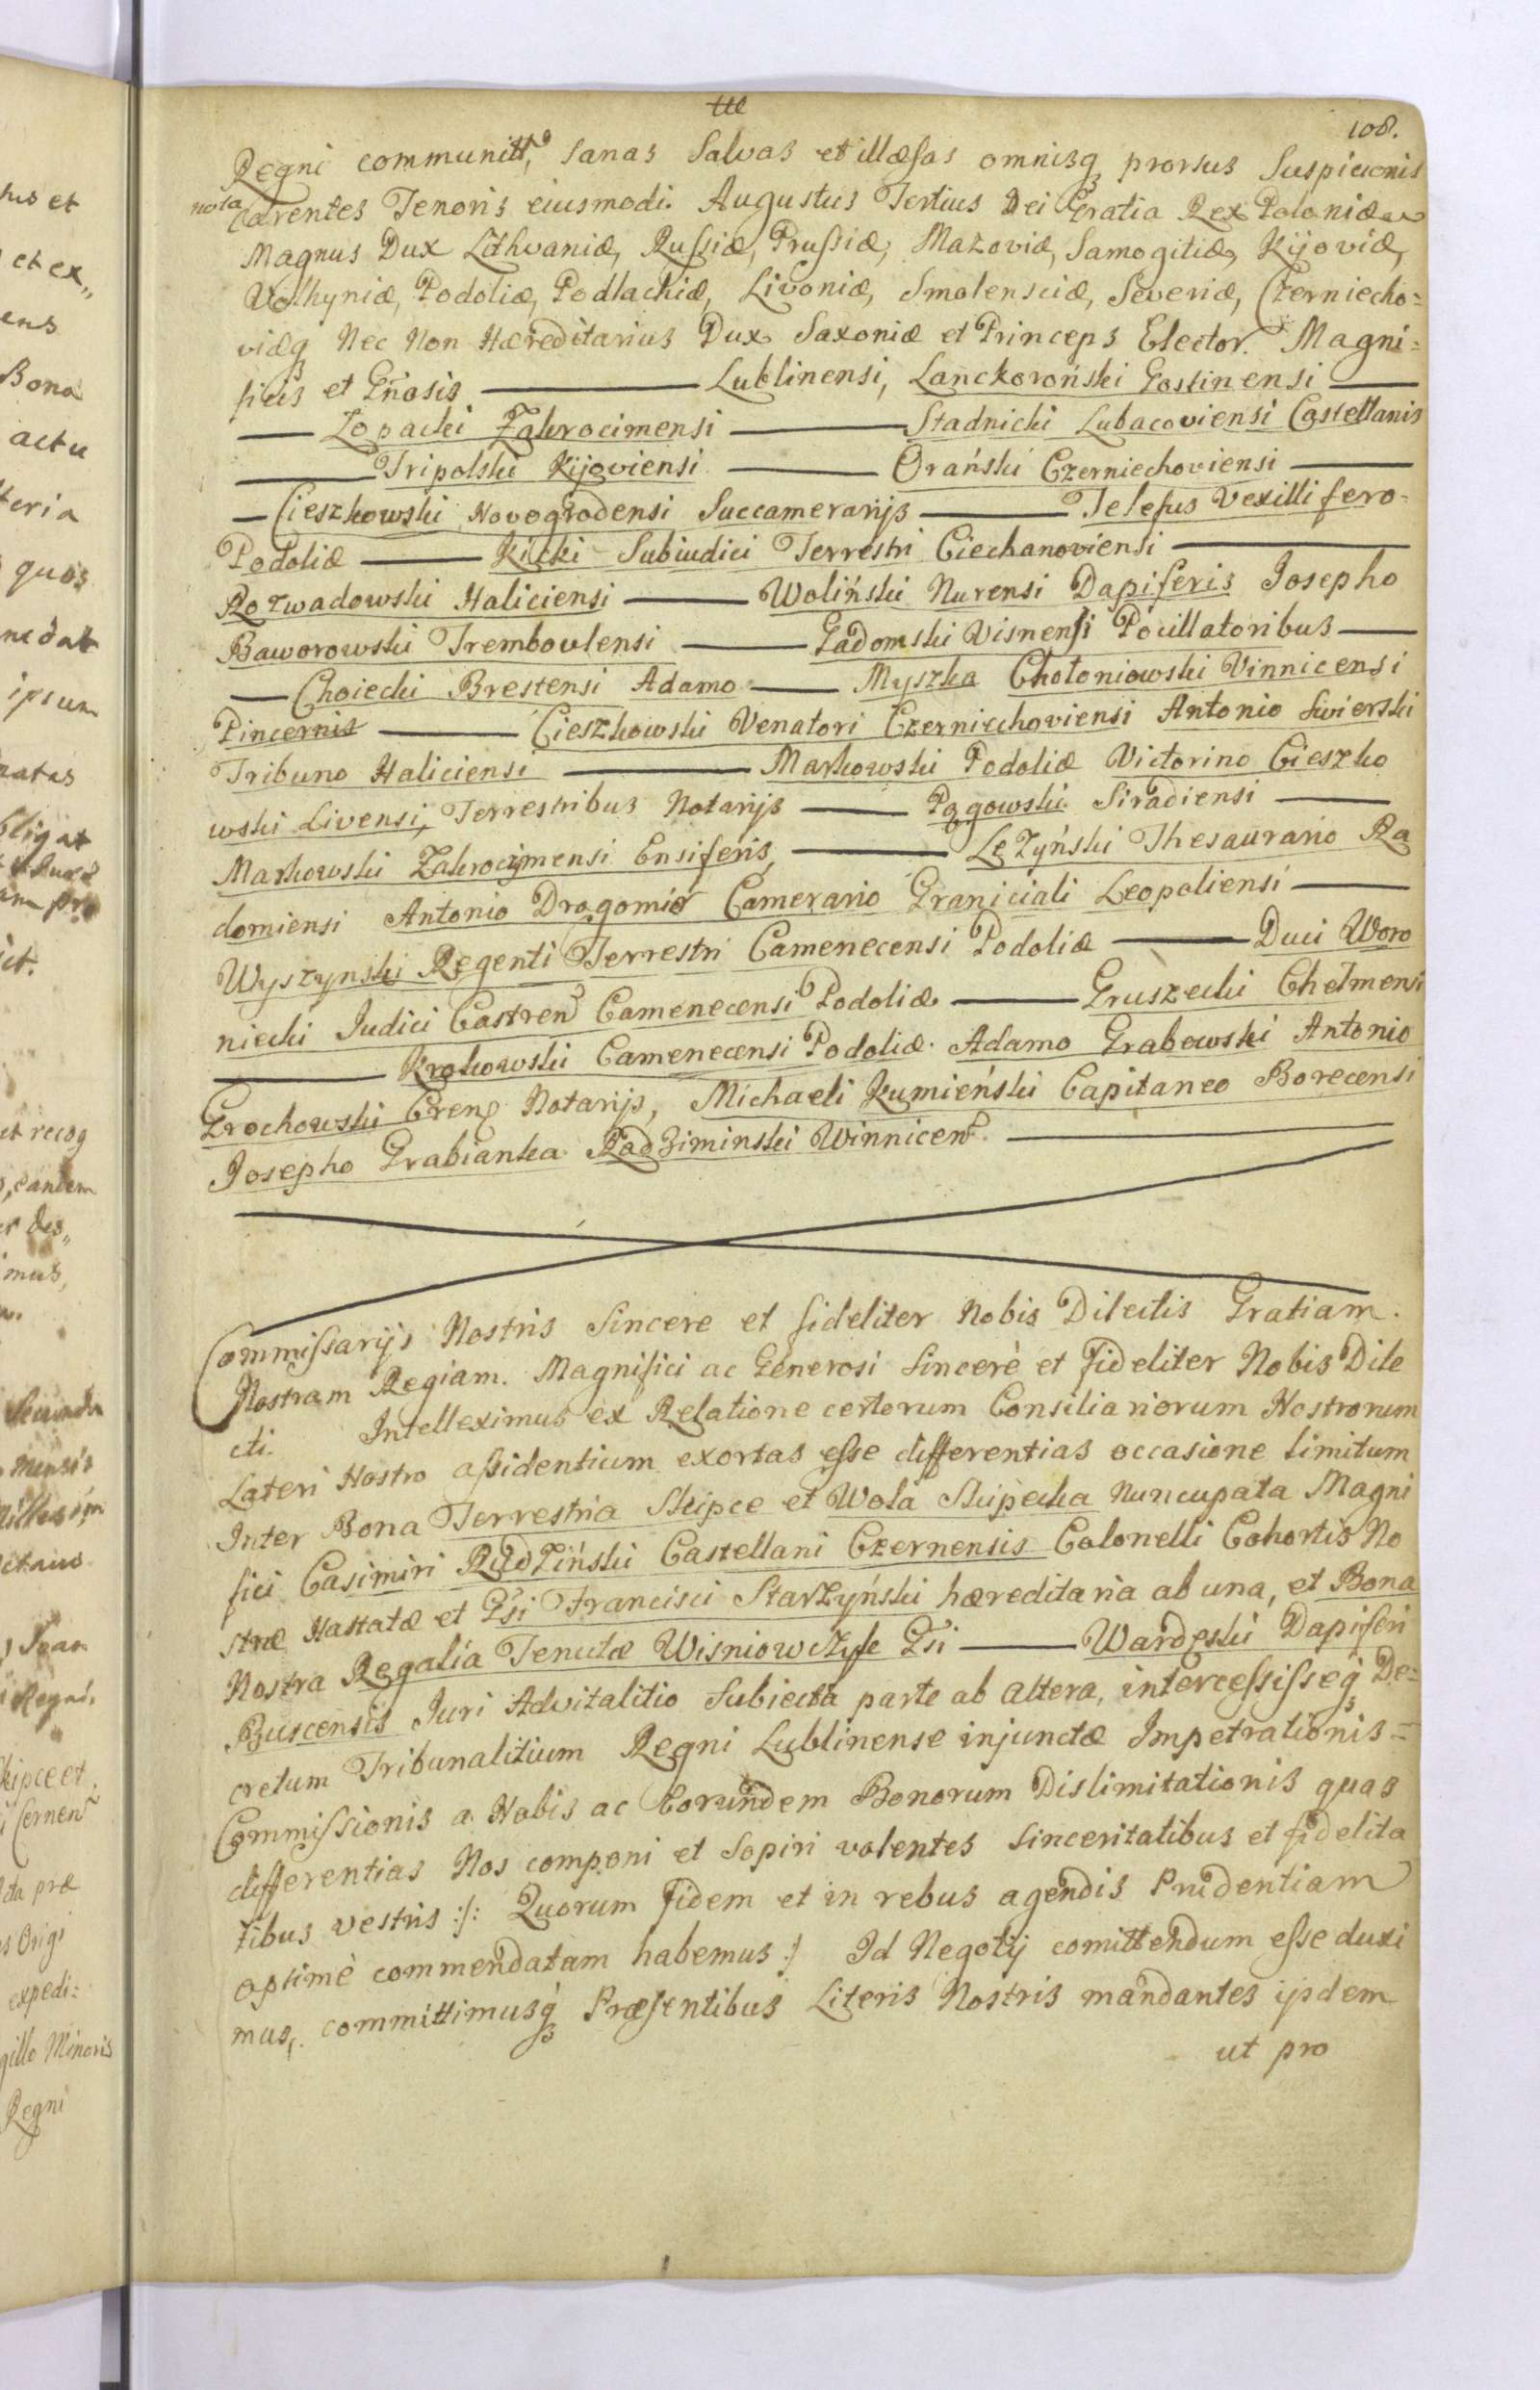 108.
Regni communitt, sanas Salvas et illæsas omnisq prorsus Suspicionis
nota
Carentes Tenoris eiusmodi. Augustus Tertius Dei Gratia Rex Poloniæ
Magnus Dux Lithvaniæ, Russiæ, Prussiæ, Mazoviæ, Samogitiæ, Kijoviæ,
Volhyniæ, Podoliæ, Podlachiæ, Livoniæ, Smolensciæ, Severiæ, Czerniecho=
viæq Nec Non Hæreditarius Dux Saxoniæ et Princeps Elector. Magni=
ficis et Gñosis ——— Lublinensi, Lanckoroński Gostinensi ———
——— Łopacki Zakrocimensi ——— Stadnicki Lubacoviensi Castellanis
——— Tripolski Kijoviensi ——— Orański Czerniechoviensi ———
— Cieszkowski Novogrodensi Succamerarijs ——— Telefus Vexillifero
Podoliæ ——— Kicki Subiudici Terrestri Ciechanoviensi ———
Rozwadowski Haliciensi ——— Woliński Nurensi Dapiferis Josepho
Baworowski Trembovlensi ——— Gadomski Visnensi Pocillatoribus ———
— Choiecki Brestensi Adamo ——— Myszka Chołoniowski Vinnicensi
Pincernis ——— Cieszkowski Venatori Czerniechoviensi Antonio Swierski
Tribuno Haliciensi ——— Markowski Podoliæ Victorino Cieszko
wski Livensi, Terrestribus Notarijs ——— Pągowski Siradiensi ———
Markowski Zakrocijmensi Ensiferis, ——— Leżyński Thesaurario Ra
domiensi Antonio Dragomir Camerario Graniciali Leopoliensi ———
Wyszynski Regenti Terrestri Camenecensi Podoliæ ——— Duci Woro
niecki Judici Castren Camenecensi Podoliæ ——— Gruszecki Chełmensi
——— Krakowski Camenecensi Podoliæ. Adamo Grabowski Antonio
Grochowski Cren Notarijs, Michaeli Kumieński Capitaneo Borecensi
Josepho Grabianka Radziminski Winnicen. ———
Commissarijs Nostris Sincere et fideliter Nobis Dilectis Gratiam
Nostram Regiam. Magnifici ac Generosi Sincerè et Fideliter Nobis Dile
cti. Intelleximus ex Relatione certorum Consiliariorum Nostrorum
Lateri Nostro assidentium exortas esse differentias occasione limitum
Inter Bona Terrestria Skipce et Wola Skipecka Nuncupata Magni
fici Casimiri Rudziński Castellani Czernensis Colonelli Cohortis No
stræ Hastatæ et Gsi Francisci Starzyński hæreditaria ab una, et Bona
Nostra Regalia Tenutæ Wisniowczyk Gsi ——— Wardęski Dapiferi
Buscensis Juri Advitalitio Subiecta parte ab altera, intercessisseq De=
cretum Tribunalitium Regni Lublinense injunctæ Impetrationis=
Commissionis a Nobis ac Eorundem Bonorum Dislimitationis quas
differentias Nos componi et Sopiri volentes Sinceritatibus et fidelita
tibus vestris :/: Quorum Fidem et in rebus agendis Prudentiam
optimè commendatam habemus :/ Id Negotij comittendum esse duxi
mus, committimusq Præsentibus Literis Nostris mandantes ijsdem
ut pro